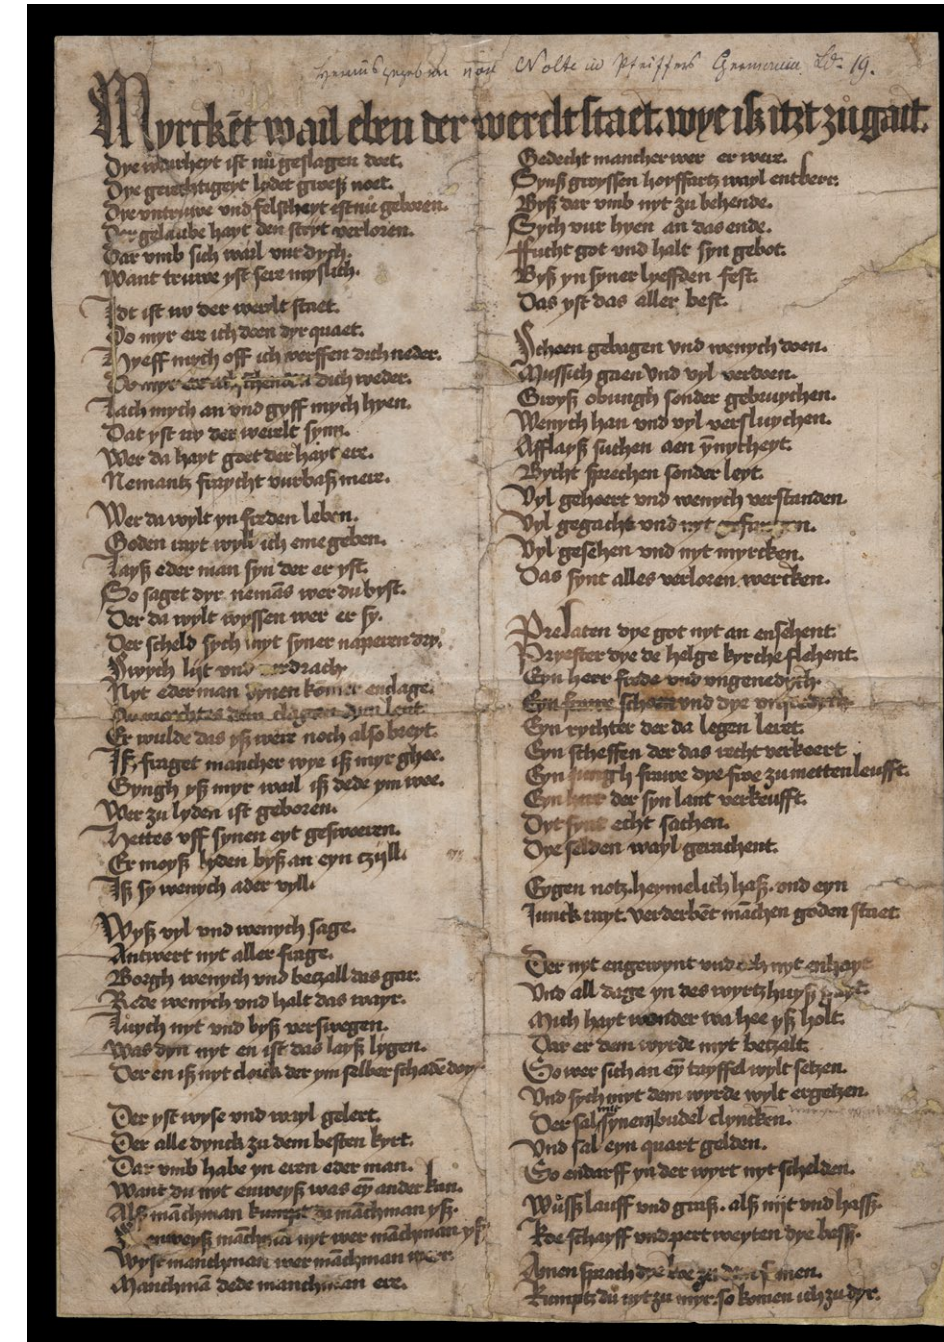 Herausgegeben von Nolte in Pfeiffers Germania Bd. 19.
Myrckēt wail eben der werelt staet. wye iß itzt zůgait.
Dye warheyt ist nů geslagen doet.
Dye gerechtigeyt lydet groeß noet.
Dye vntruwe vnd felscheyt ist nu geboren.
Der gelaube hayt den stryt verloren.
Dar vmb sich wail vur dych.
Want truwe yst sere myslich.
Idt ist nv der werlt staet.
Do myr ere ich doen dyr quaet.
Hyeff mych off ich werffen dich neder.
Do myr ere ich schenden dich weder.
Lach mych an vnd gyff mych hyen.
Dat yst nv der werelt synn.
Wer da hayt goet der hayt ere.
Nemantz fraycht vurbaß mere.
Wer da wylt yn freden leben.
Goden rayt wyll ich eme geben.
Layß eder man syn der er yst.
So saget dyr nemās wer du byst.
Der da wylt wyssen wer er sy.
Der scheld sych myt syner naperen dry.
Swych lijt vnd verdrach
Nyt eder man dynen komer enclage.
dem clagen dyn leut.
Er wulde das yß were noch also breyt.
Iß fraget mancher wye iß myr ghee.
Gyngh yß myr wail iß dede ym wee.
Wer zu lyden ist geboren.
Hettes vff synen eyt gesworen.
Er moyß lyden byß an eyn czijll.
Iß sy wenych ader vyll.
Wyß vyl vnd wenych sage.
Antwert nyt aller frage.
Borgh wenych vnd betzall das gar.
Rede wenych vnd halt das wayr.
Luych nyt vnd byß verswegen.
Was dyn nyt en ist das layß lygen.
Der en iß nyt cloick der ym selber schadē doy
Der yst wyse vnd wayl gelert.
Der alle dynck zu dem besten kyrt.
Dar vmb habe yn eren eder man.
Want du nyt enweyß was eyn ander kan.
Alß māchman kumpt da māchman yß.
enweyß māchman nyt wer māchman yß
Wyst manchman wer māchman wer.
Manchmā dede manchman ere.
Gedecht mancher wer er were.
Synß groyssen hoyffartz wayl entbere.
Byß dar vmb nyt zu behende.
Sych vur hyen an das ende.
Ffrucht got vnd halt syn gebot.
Byß yn syner lyeffden fest.
Das yst das aller best.
Schoen gebagen vnd wenych doen.
Mussich gaen vnd vyl verdoen.
Groyß obungh sonder gebruychen.
Wenych han vnd vyl versluychen.
Afflayß suchen aen ynnycheyt.
Bycht sprechen sonder leyt.
Vyl gehoert vnd wenych verstanden
Vyl gegacht vnd nyt gefangen.
Vyl gesehen vnd nyt myrcken.
Das synt alles verloren wercken.
Prelaten dye got nyt an ensehent.
Pryester dye de helge kyrche flehent.
Eyn herr frede vnd vngenedych
Eyn frauwe schoen vnd dye
Eyn rychter der da legen leret.
Eyn scheffen der das recht verkoert
Eyn jungh frauwe dye froe zu metten leufft.
Eyn herr der syn lant verkeufft.
Dyt synt echt sachen.
Dye selden wayl gerachent.
Eygen notz. heymelich haß. vnd eyn
Junck rayt. verderbēt māchen goden staet.
Der nyt engewynt vnd och nyt enhayt
Vnd all dage yn des wyrtz huyß gayt.
Mich hayt wonder wa hee yß holt.
Dar er dem wyrde myt betzalt.
So wer sich an eȳ tayffel wylt setzen.
Vnd sych myt dem wyrde wylt ergetzen.
Der sal mit synem budel clyncken.
Vnd sal eyn quart gelden.
So endarff yn der wyrt nyt schelden.
Wulff lauff vnd graß. alß nijt vnd hass.
Koe schayff vnd pert weyten dye baß.
Amen sprach dye koe zu dem
Kumptz dů nyt zu myr. so komen ich zu dyr.